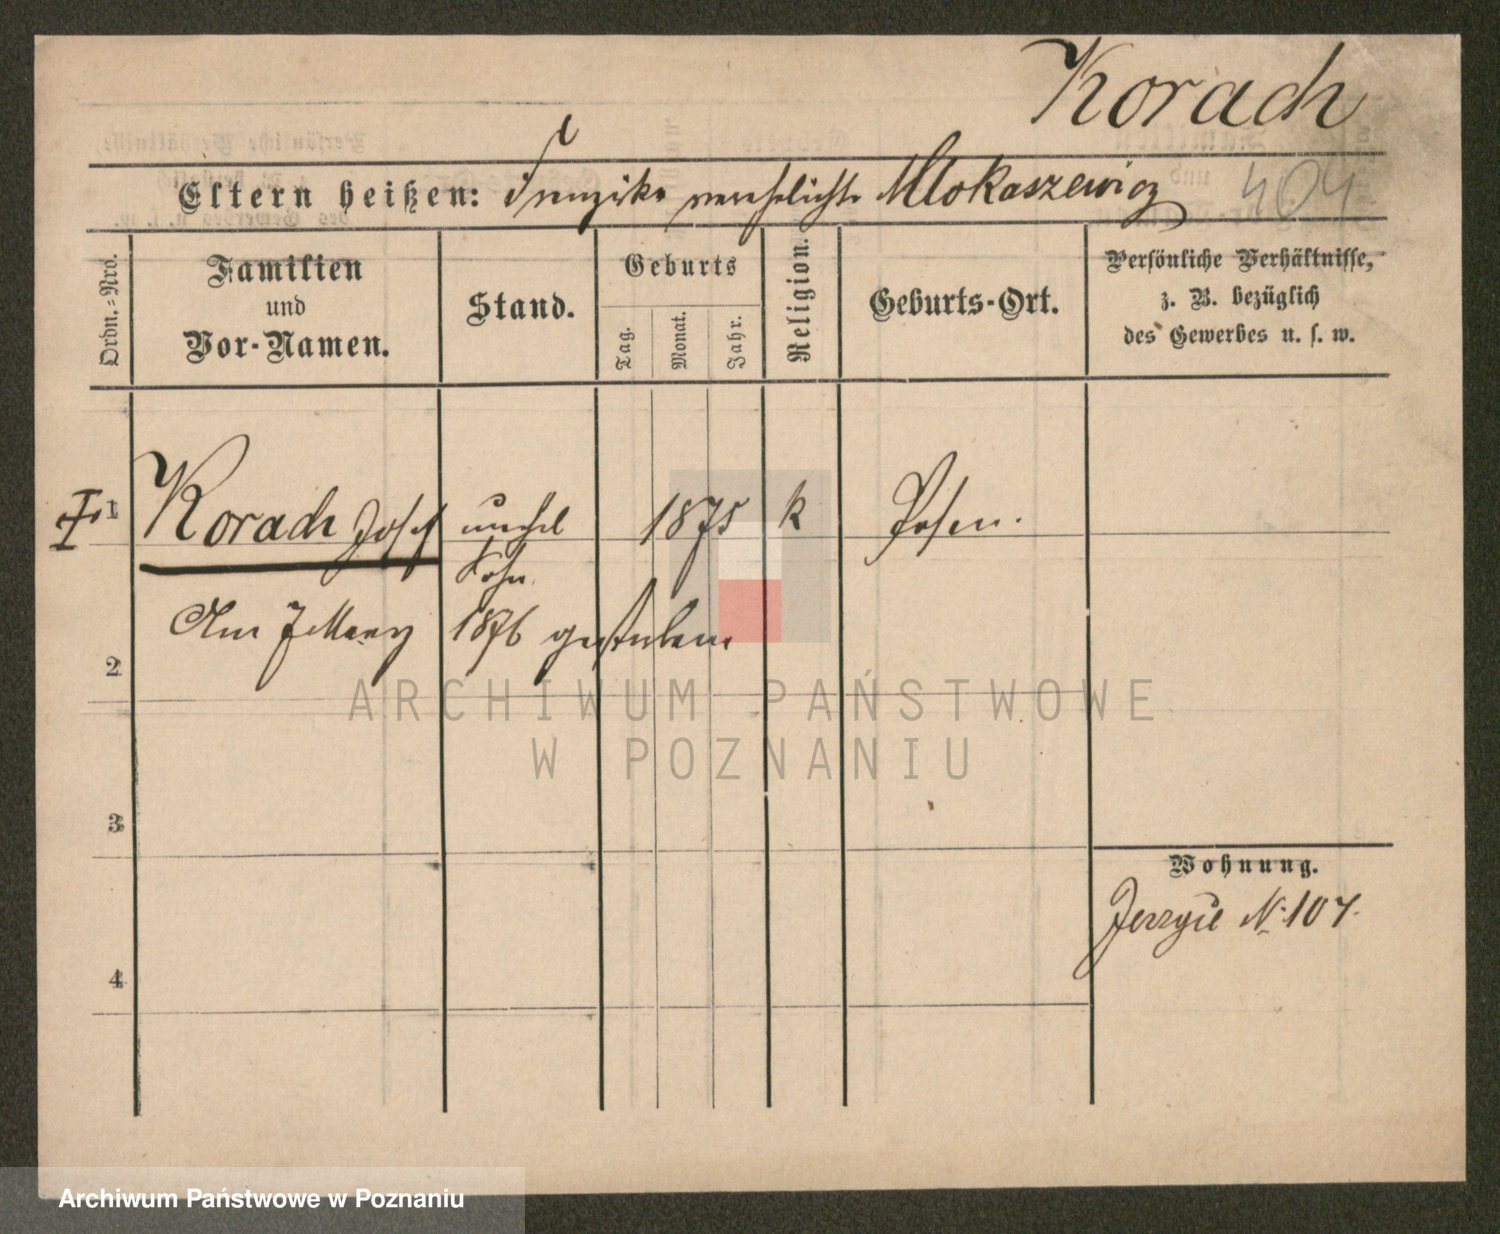 Korach
Eltern heißen: Franziska verehelichte Mlokaszewicz 404
Ordn.-Nro.
Familien
und
Vor-Namen.
Stand.
Geburts
Tag.
Monat.
Jahr.
Religion.
Geburts-Ort.
Persönliche Verhältnisse,
z. B. bezüglich
des Gewerbes u. s. w.
1 Korach Josef unehel 1875 k Posen.
Sohn
Am 7 März 1876 gestorben
2
3
4
Wohnung.
Jerzyce N. 107.
ARCHIWUM PAŃSTWOWE
W POZNANIU
Archiwum Państwowe w Poznaniu